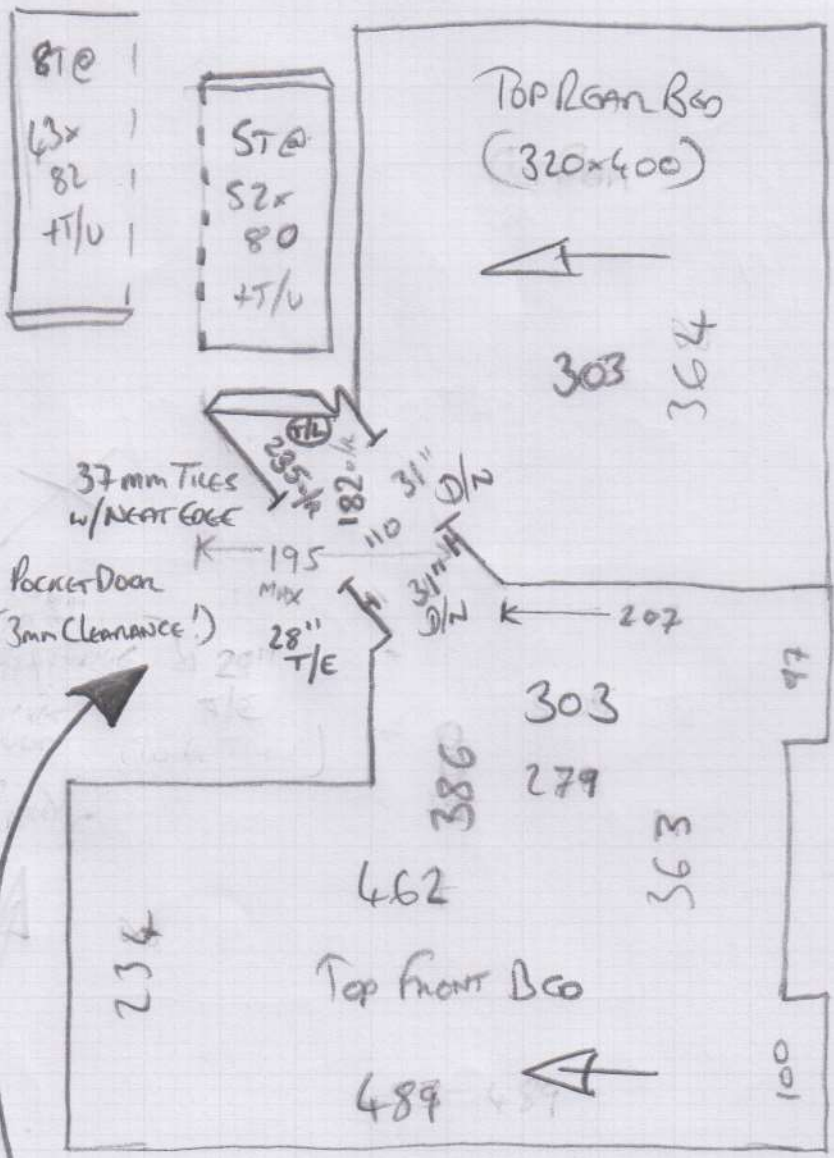 8T@
43x
82
+T/U
5T@
52x
80
+T/U
TOP REAR BED
(320x400)
303
364
T/L
235o/a
182o/a
31"
D/N
110
37mm TILES
w/NEAT EDGE
195
MAX
31"
D/N
POCKET DOOR
(3mm CLEARANCE!)
28"
T/E
207
97
303
279
386
363
462
234
TOP FRONT BED
100
489